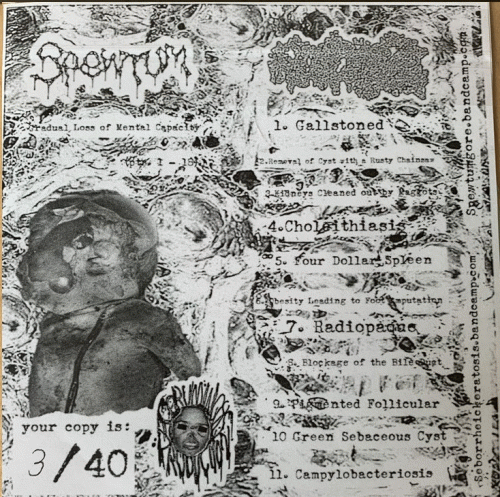 Spewtum
Gradual Loss of Mental Capacity
1. Gallstoned
2. Removal of Cyst with a Rusty Chainsaw
3. Kidneys Cleaned out by Maggots
4. Choleithiasis
5. Four Dollar Spleen
6. Obesity Leading to Foot Amputation
7. Radiopaque
8. Blockage of the Bile Duct
9. Pigmented Follicular
10 Green Sebaceous Cyst
11. Campylobacteriosis
your copy is:
3/40
Spewtumgore.bandcamp.com
Seborrheickeratosis.bandcamp.com